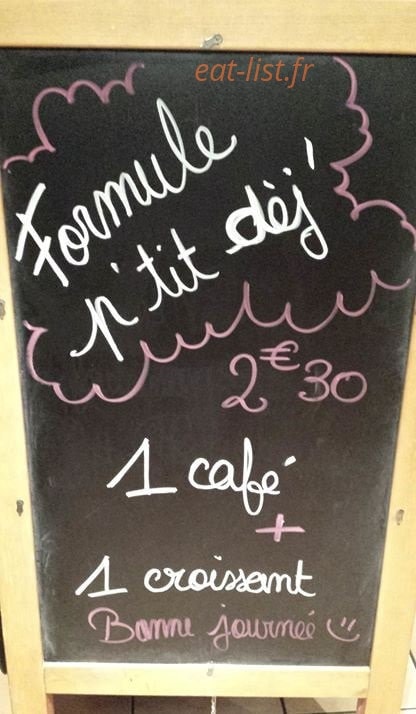 eat-list.fr
Formule
p'tit déj'
2€30
1 café
+
1 croissant
Bonne journée :)